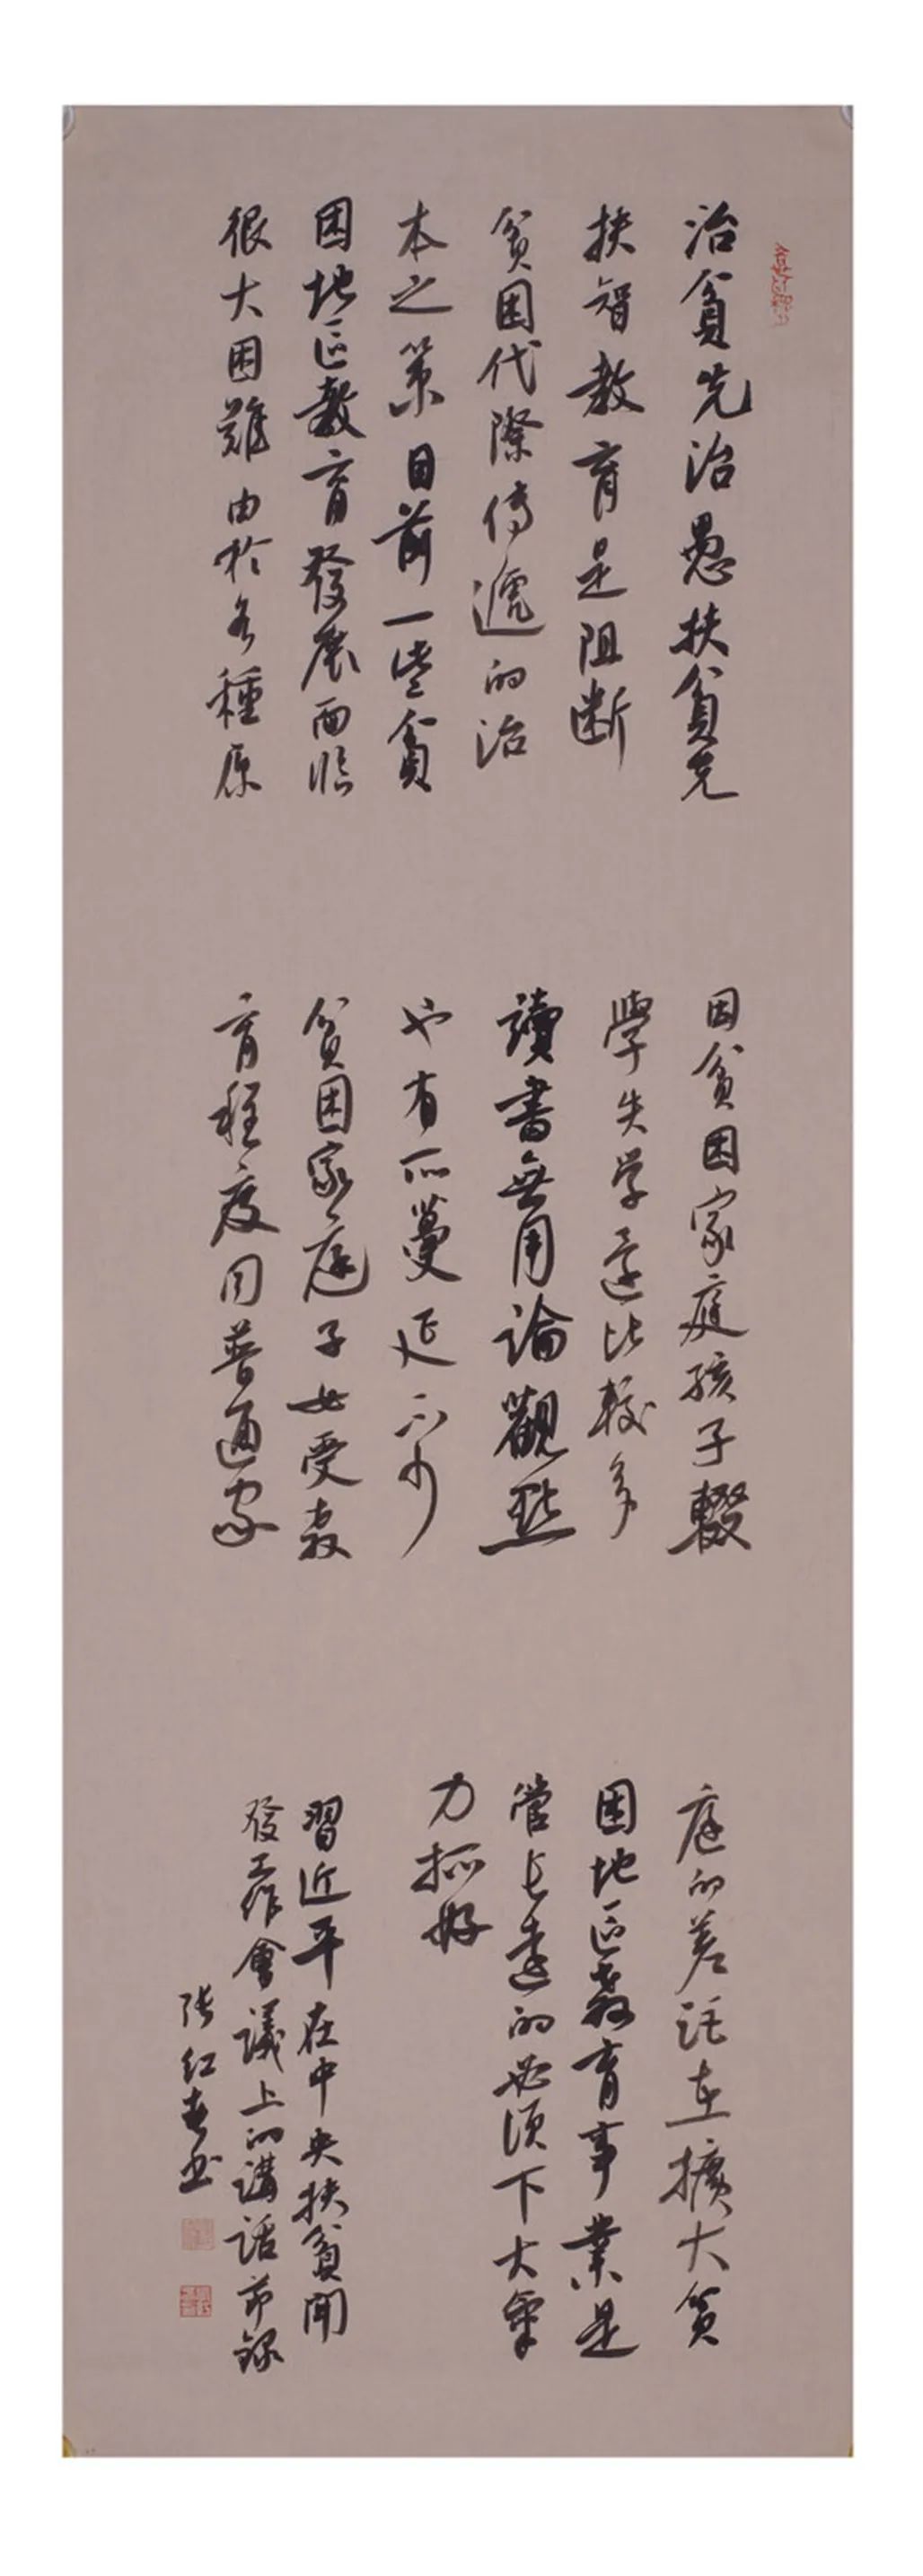 治貧先治愚扶貧先
扶智教育是阻断
貧困代際傳遞的治
本之策目前一些貧
困地區教育發展面臨
很大困難由於各種原
因貧困家庭孩子輟
學失学還比較多
讀書無用論觀點
也有所蔓延不少
貧困家庭子女受教
育程度同普通家
庭的差距在擴大貧
困地區教育事業是
管長遠的必須下大氣
力抓好
習近平在中央扶貧開
發工作會議上的講話節錄
张红春书